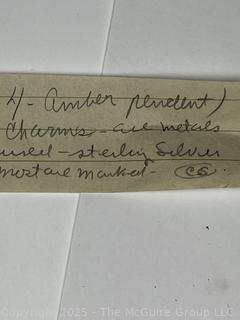 4 - Amber pendent)
Charms - are metals
used - sterling Silver
most are marked - CS.
Copyright 2025 - The McGuire Group LLC